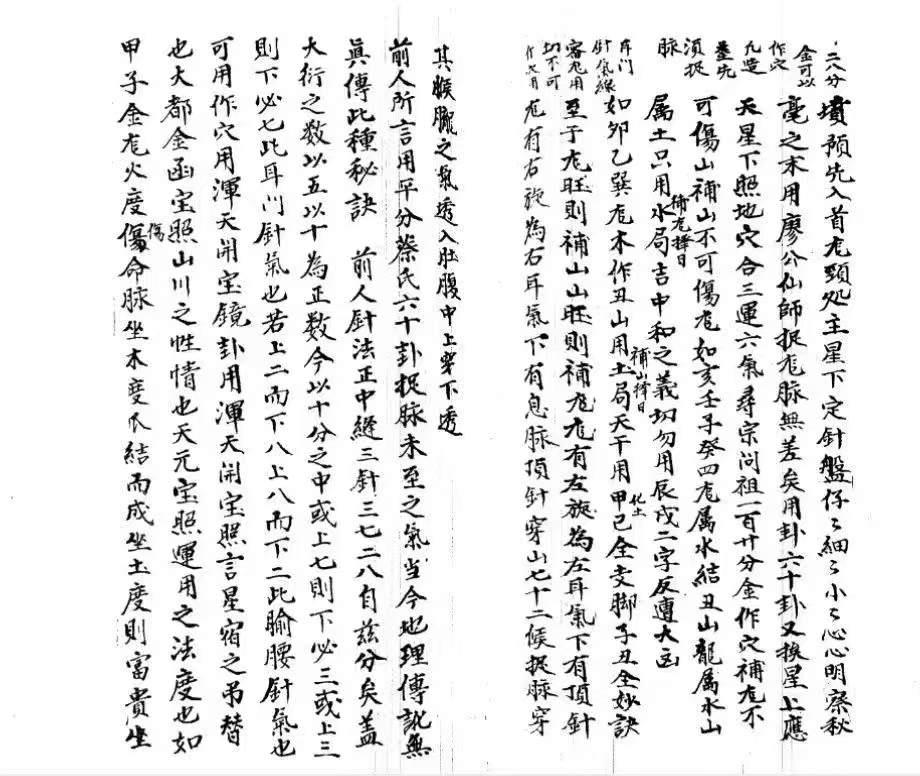 二八分
金可以
作穴
凡造
塟先
須捉
脉
墳預先入首尨頸処主星下定針盤仔々細々小々心心明察秋
毫之末用廖公仙師捉尨脉無差矣用卦六十卦又挨星上應
天星下照地穴合三運六氣尋宗问祖一百廿分金作穴補尨不
可傷山補山不可傷尨如亥壬子癸四尨属水結丑山龍属水山
属土只用水局吉中和之義切勿用辰戌二字反遭大凶
補尨擇日
補山擇日
如卯乙巽尨木作丑山用土局天干用甲己全支脚子丑全妙訣
化土
耳门
針氣線
至于尨旺則補山山旺則補尨尨有左旋為左耳氣下有頂針
容尨用
切不可
尨有右旋為右耳氣下有息脉頂針穿山七十二候捉脉穿
其猴臓之氣透入肚腹中上穿下透
前人所言用平分蔡氏六十卦捉脉未至之氣当今地理傳訛無
眞傳此種秘訣 前人針法正中縫三針三七二八自兹分矣盖
大衍之数以五以十為正数今以十分之中或上七則下必三或上三
則下必七此耳门針氣也若上二而下八上八而下二此腧腰針氣也
可用作穴用渾天開宝鏡卦用渾天開宝照言星宿之吊替
也大都金函宝照山川之性情也天元宝照運用之法度也如
甲子金尨火度傷命脉坐木度爪結而成坐土度則富貴坐
傷